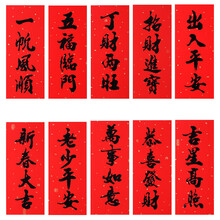 一帆風順
五福臨門
丁財兩旺
招財進寶
出入平安
新春大吉
老少平安
萬事如意
恭喜發財
吉星高照